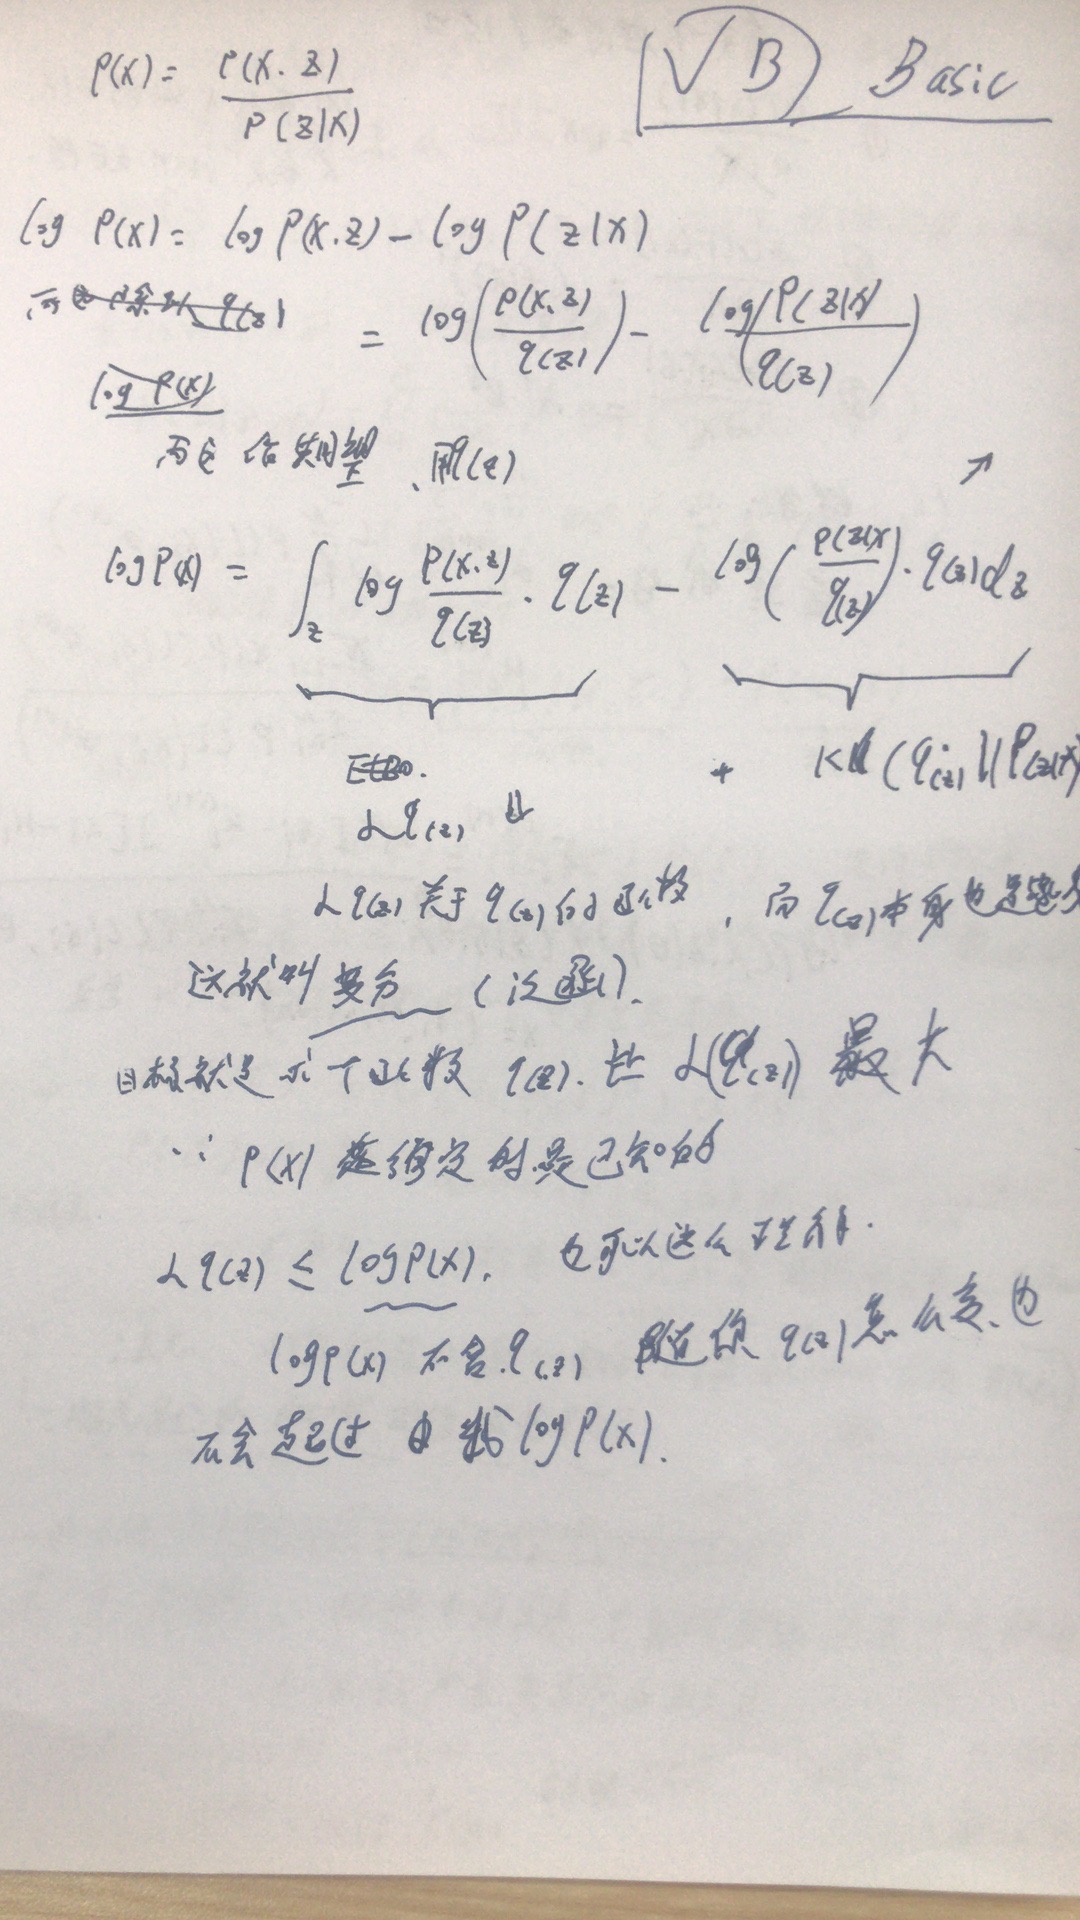 VB Basic
P(X) = P(X.Z) / P(Z|X)
log P(X) = log P(X.Z) - log P(Z|X)
q(z)
= log(P(X.Z) / q(z)) - log(P(Z|X) / q(z))
log P(X)
两边 期望、用q(z)
log P(X) = ∫z log P(X.Z)/q(z) · q(z) - log(P(Z|X)/q(z)) · q(z) dz
ELBO. + KL(q(z)||P(Z|X)
L q(z) ⇓
L q(z) 关于 q(z) 的函数, 而 q(z) 本身也是
这就叫变分 (泛函).
目标就是求个函数 q(z). 让 L(q(z)) 最大
∵ P(X) 给定时是已知的
L q(z) ≤ log P(X). 也可以这么理解.
log P(X) 不含 q(z) 随你 q(z) 怎么变、也
不会超过 log P(X).